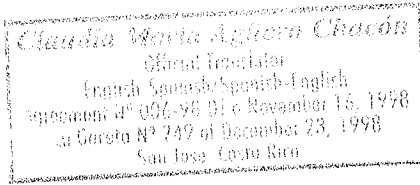 Claudia María Agüero Chacón
Official Translator
English-Spanish/Spanish-English
Agreement Nº 006-98 DJ November 16, 1998
La Gaceta Nº 249 of December 23, 1998
San José, Costa Rica